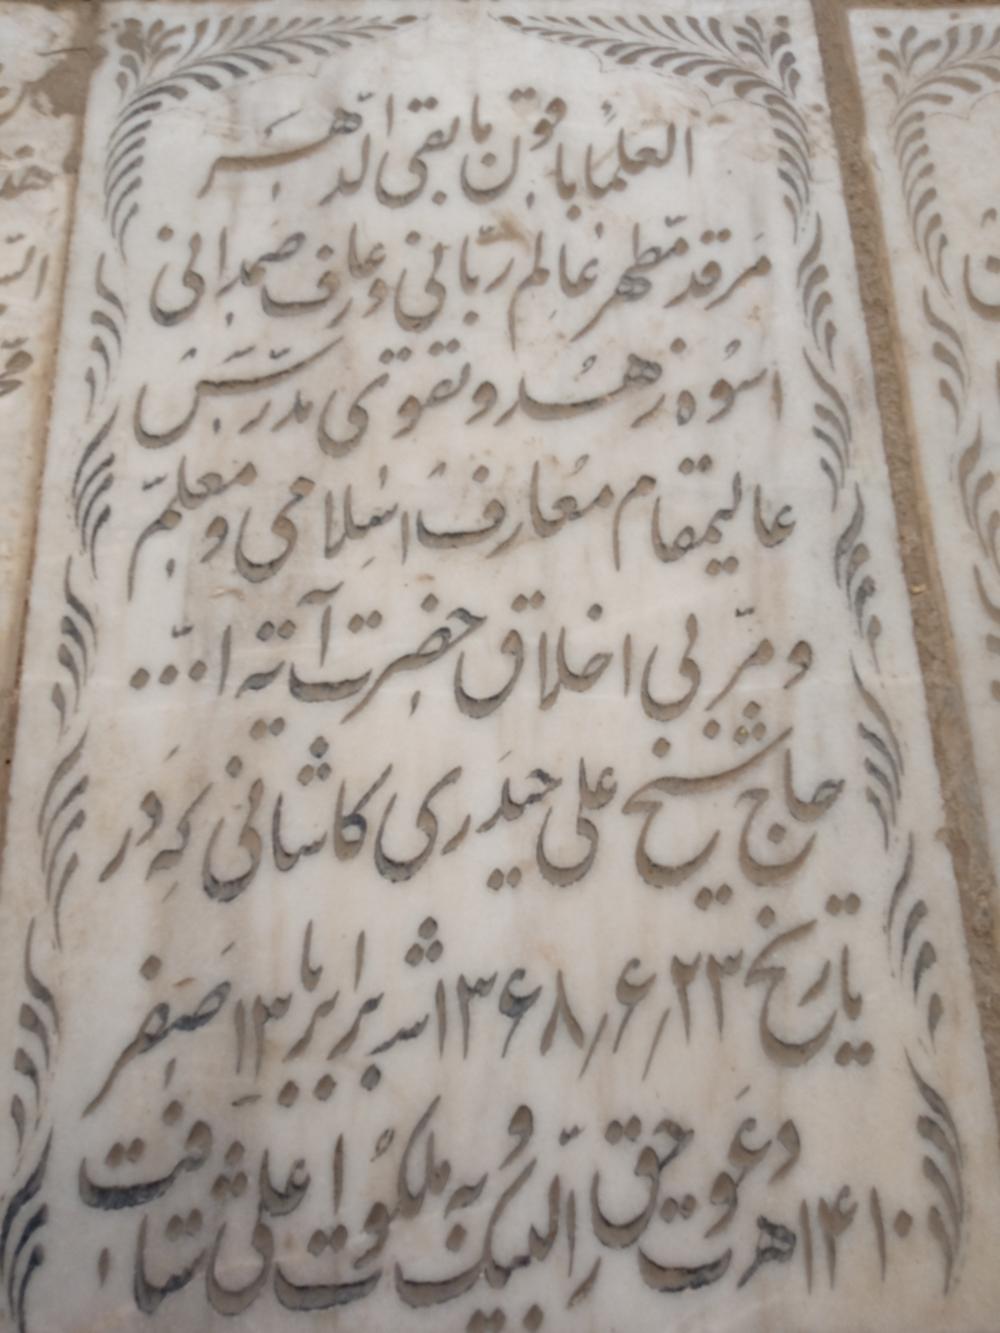 العلماء باقون ما بقی الدهر
مرقد مطهر عالم ربّانی و عارف صمدانی
اسوه زهد و تقوی مدرّس
عالیمقام معارف اسلامی و معلّم
و مرّبی اخلاق حضرت آیة ا...
حاج شیخ علی حیدری کاشانی که در
تاریخ ۲۳/۶/۱۳۶۸ ش برابر با ۱۳ صفر
۱۴۱۰ ه دعوت حق را لبّیک و به ملکوت اعلی شتافت